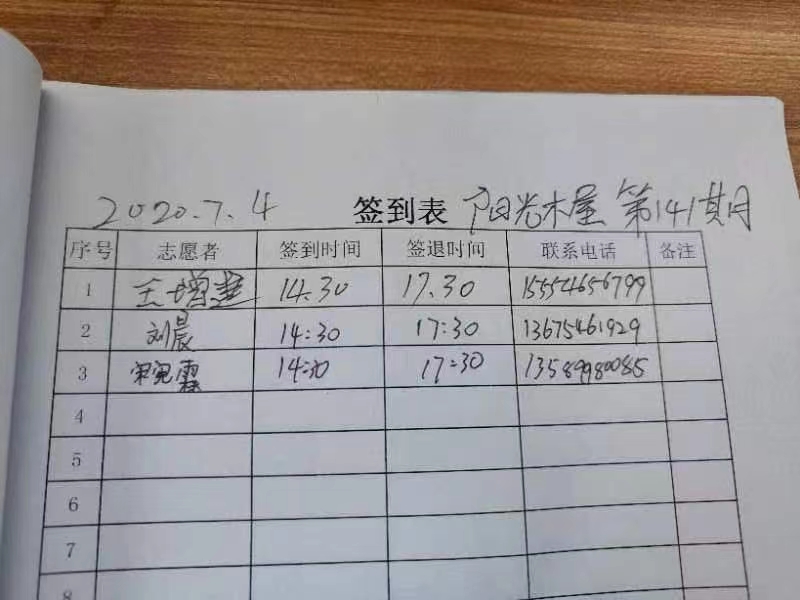 2020.7.4 签到表 阳光木屋 第141期
序号 志愿者 签到时间 签退时间 联系电话 备注
1 王增 14.30 17.30 15554656799
2 刘晨 14:30 17:30 13675461929
3 宋宛霖 14:30 17:30 13589980085
4
5
6
7
8